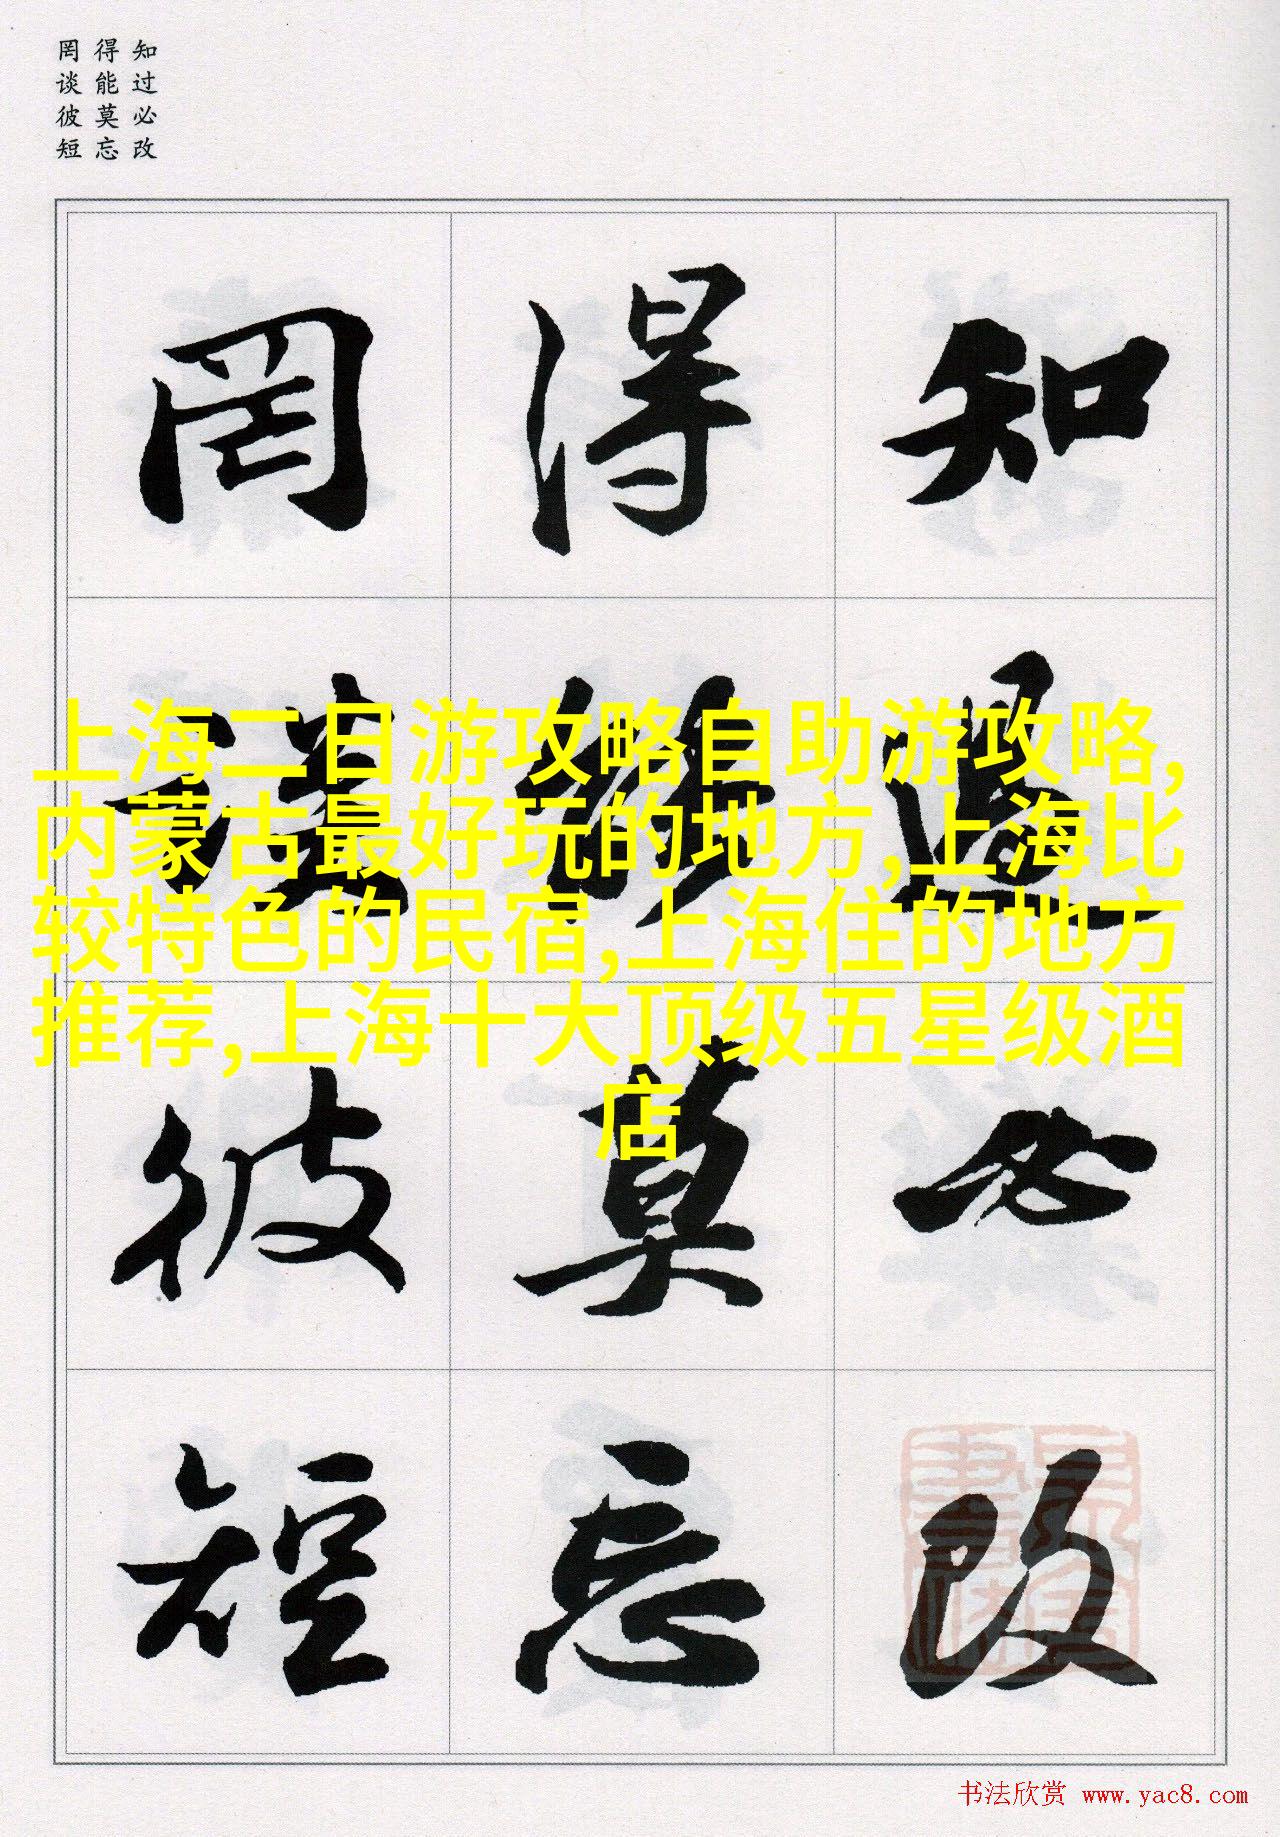 知过必改
得能莫忘
罔谈彼短
知過必改
得能莫忘
罔談彼短
上海二日游攻略自助游攻略,
内蒙古最好玩的地方,上海比
较特色的民宿,上海住的地方
推荐,上海十大顶级五星级酒
店
书法欣赏 www.yac8.com